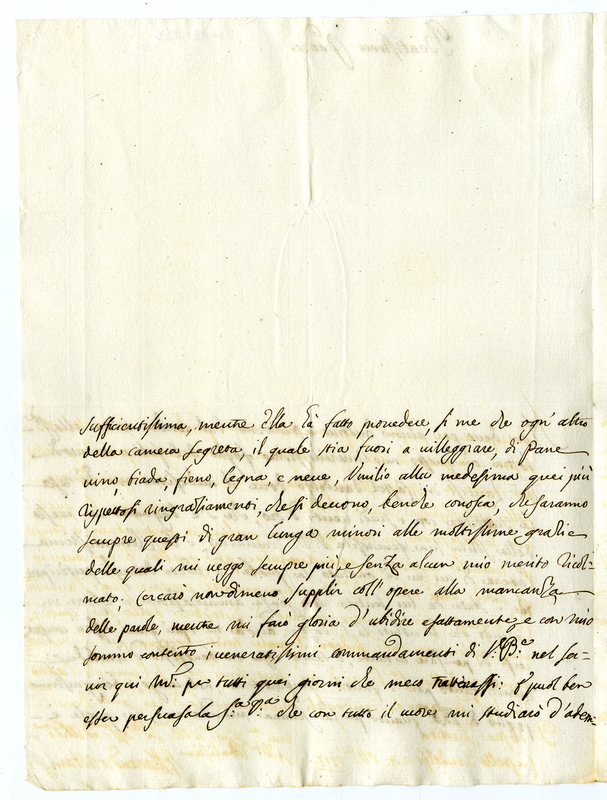 sufficientissima, mentre Ella hà fatto provedere, si me che ogn' altro
della camera segreta, il quale stia fuori a villeggiare, di Pane
vino, biada, fieno, legna, e neve, Umilio alla medesima quei più
rispettosi ringraziamenti, che si devono, benche conosca, che saranno
sempre questi di gran lunga minori alle moltissime grazie
delle quali mi veggo sempre più, e senza alcun mio merito ricol-
mato; Cercarò nondimeno supplir coll' opere alla mancanza
delle parole, mentre mi farò gloria d'ubidire esattamente, e con mio
sommo contento i veneratissimi commandamenti di V. B.ne nel ser-
vir qui per tutti quei giorni che meco : e puol ben
esser persuasa la S.ta V.ra che con tutto il cuore mi studiarò d'adem-